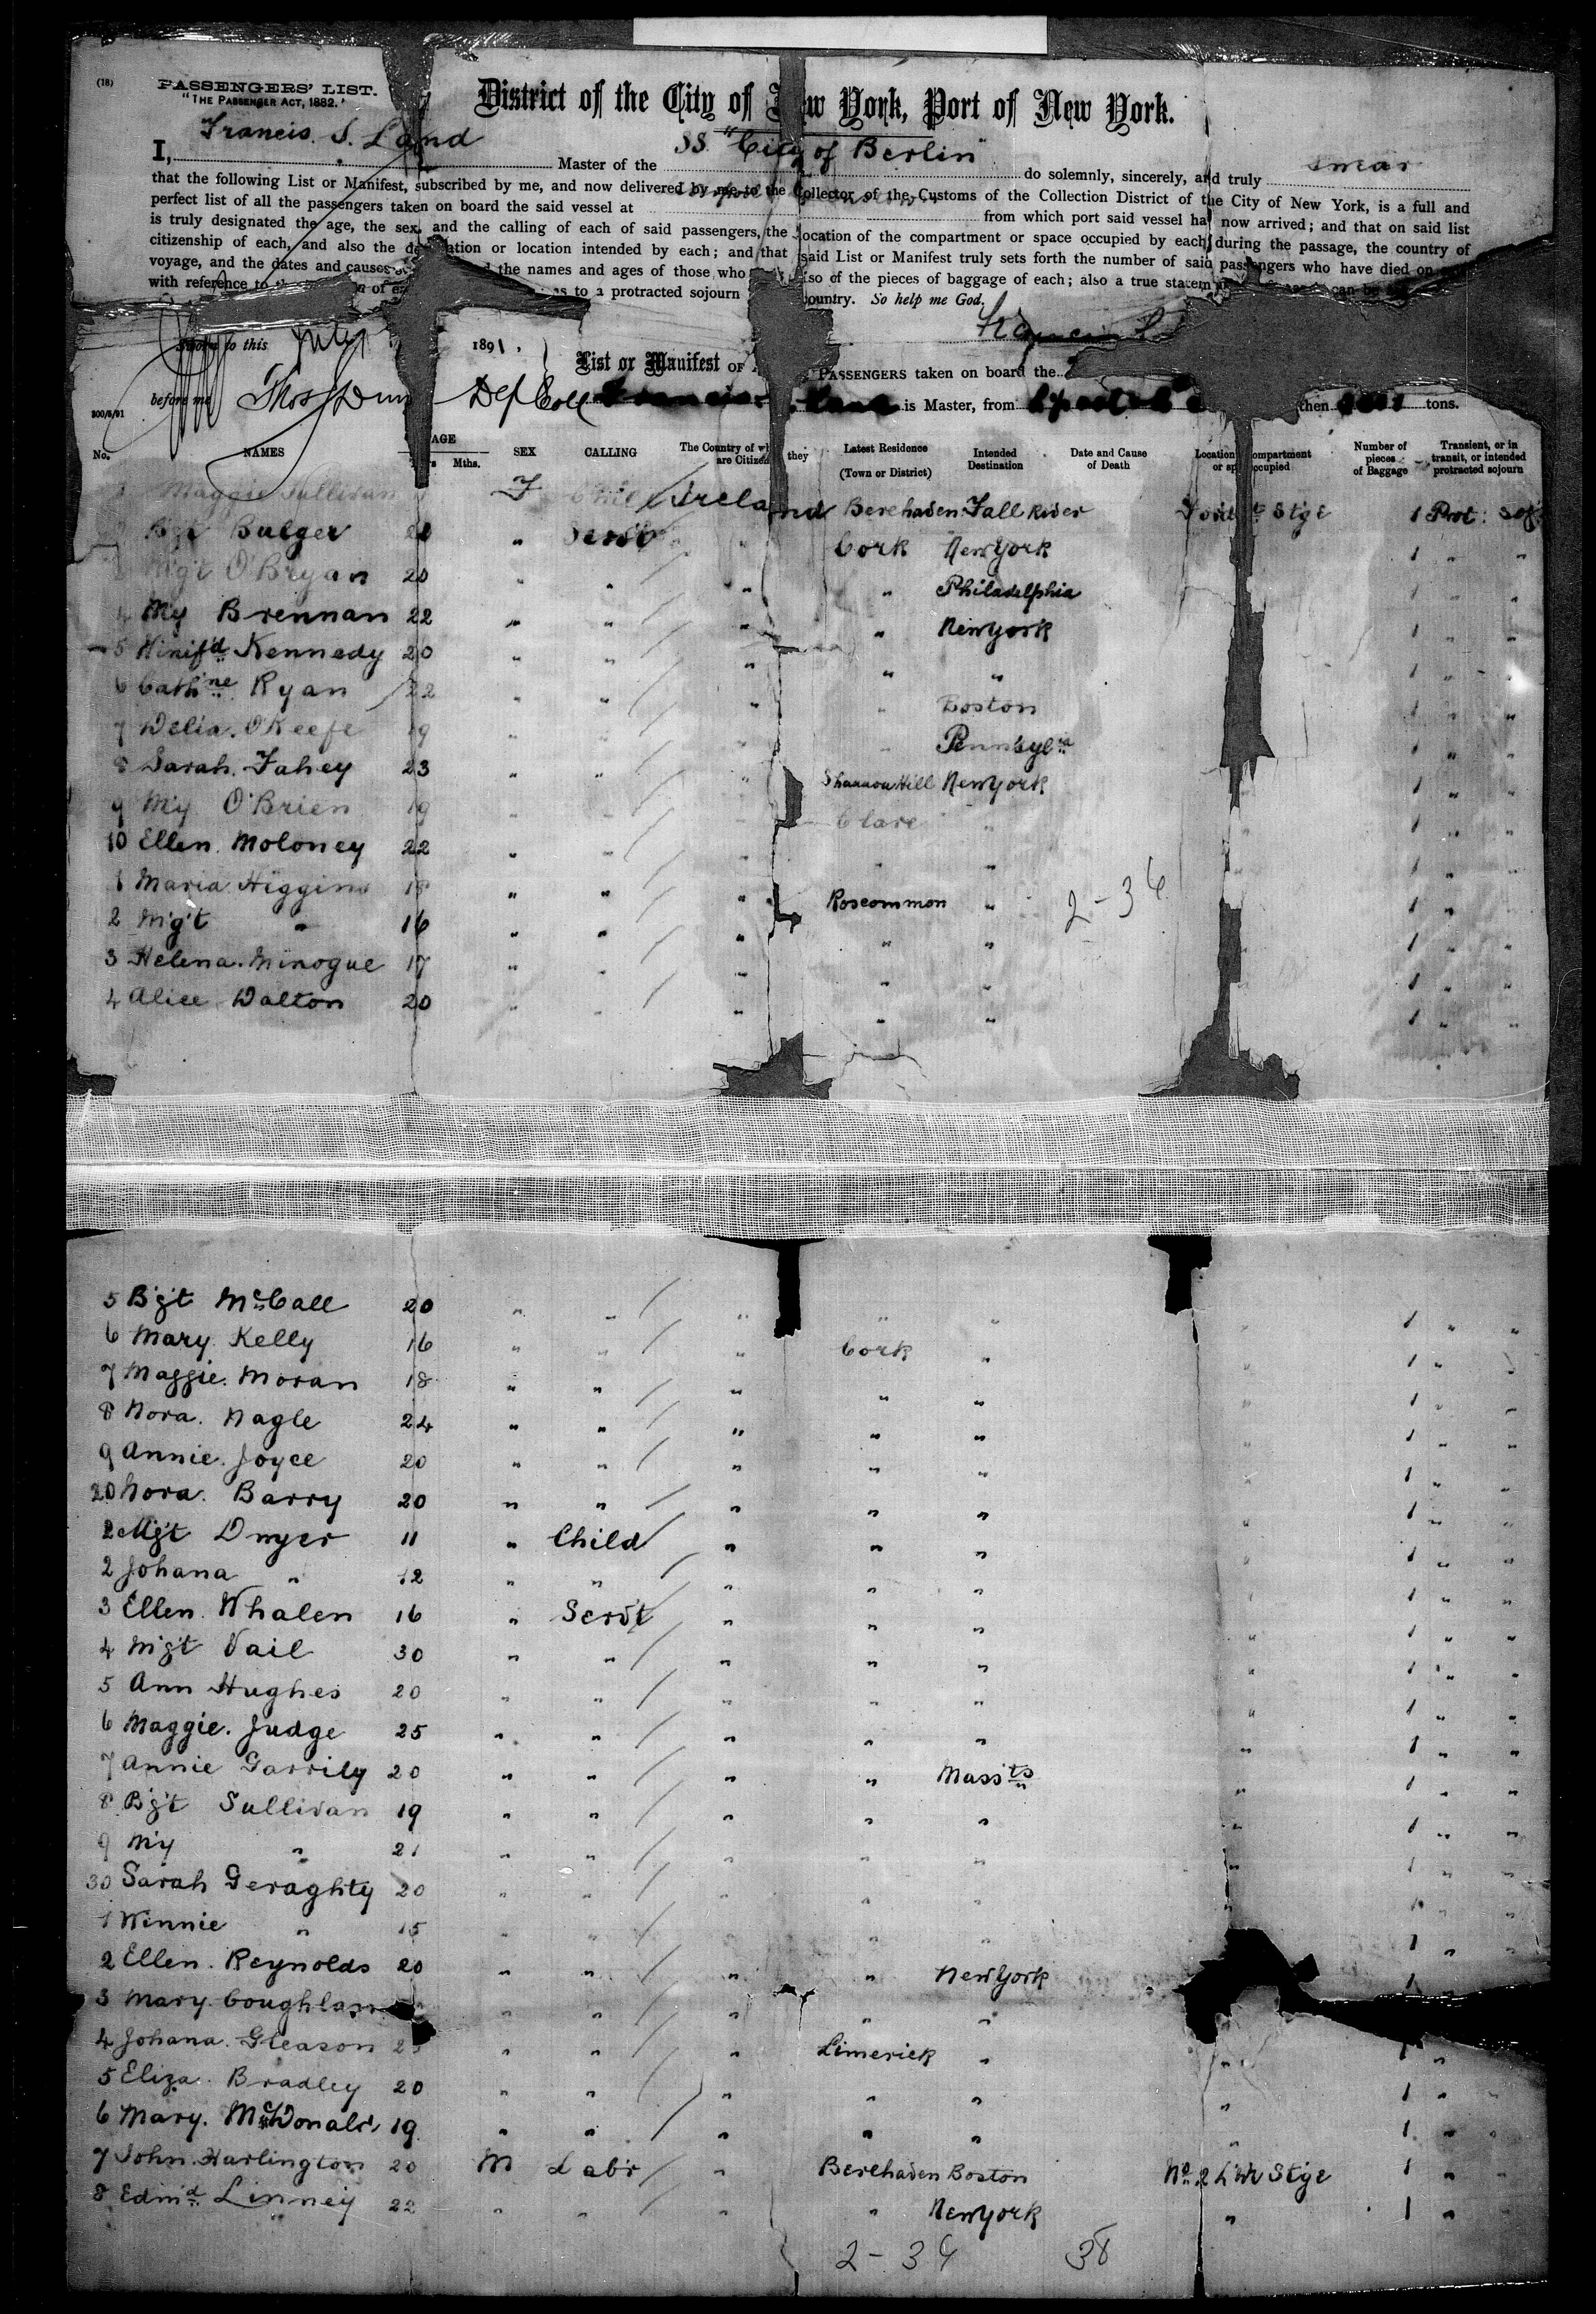 (18)
PASSENGERS' LIST.
"THE PASSENGER ACT, 1882."
District of the City of New York, Port of New York.
I, Francis. S. Land Master of the SS. "City of Berlin" do solemnly, sincerely, and truly swear
that the following List or Manifest, subscribed by me, and now delivered by me to the Collector of the Customs of the Collection District of the City of New York, is a full and
perfect list of all the passengers taken on board the said vessel at from which port said vessel ha now arrived; and that on said list
is truly designated the age, the sex, and the calling of each of said passengers, the location of the compartment or space occupied by each during the passage, the country of
citizenship of each, and also the destination or location intended by each; and that said List or Manifest truly sets forth the number of said passengers who have died on
voyage, and the dates and causes the names and ages of those who also of the pieces of baggage of each; also a true statem
with reference to to a protracted sojourn country. So help me God.
Francis S.
Sworn to this July 1891.
before me Thos Dun Dep Coll
List or Manifest OF PASSENGERS taken on board the
is Master, from then tons.
200/5/91
No. NAMES AGE Mths. SEX CALLING The Country of wh they are Citizens Latest Residence (Town or District) Intended Destination Date and Cause of Death Location compartment or sp occupied Number of pieces of Baggage Transient, or in transit, or intended protracted sojourn
1 Maggie Sullivan F Ireland Berehaven Fall River Stge 1 Prot: Soj
Bgt Bulger " Servt " Cork New York 1 " "
Mgt O'Bryan 20 " " " " Philadelphia 1 " "
4 My Brennan 22 " " " " New York 1 " "
5 Winif'd Kennedy 20 " " " " " 1 " "
6 Cath'ne Ryan 22 " " " " Boston 1 " "
7 Delia. O'Keefe 19 " " " " Pennsyl'a 1 " "
8 Sarah. Fahey 23 " " " Shannon Hill New York 1 " "
9 My O'Brien 19 " " " Clare " 1 " "
10 Ellen. Moloney 22 " " " " " 1 " "
1 Maria Higgins 18 " " " Roscommon " 1 " "
2-36
2 Mgt " 16 " " " " " 1 " "
3 Helena. Minogue 17 " " " " " 1 " "
4 Alice Dalton 20 " " " " " 1 " "
5 Bgt McCall 20 " " " " " " 1 " "
6 Mary. Kelly 16 " " " Cork " " 1 " "
7 Maggie. Moran 18 " " " " " " 1 " "
8 Nora. Nagle 24 " " " " " " 1 " "
9 Annie. Joyce 20 " " " " " " 1 " "
20 Nora. Barry 20 " " " " " " 1 " "
2 Mgt Dwyer 11 " Child " " " " 1 " "
2 Johana " 12 " " " " " " 1 " "
3 Ellen. Whalen 16 " Servt " " " " 1 " "
4 Mgt Vail 30 " " " " " " 1 " "
5 Ann Hughes 20 " " " " " " 1 " "
6 Maggie. Judge 25 " " " " " " 1 " "
7 Annie Garrity 20 " " " " Mass'ts " 1 " "
8 Bgt Sullivan 19 " " " " " " 1 " "
9 My " 21 " " " " " " 1 " "
30 Sarah Geraghty 20 " " " " " " 1 " "
1 Winnie " 15 " " " " " 1 " "
2 Ellen. Reynolds 20 " " " " New York 1 "
3 Mary. Coughlan " " " " "
4 Johana. Gleason " " " Limerick " " 1 "
5 Eliza. Bradley 20 " " " " " " 1 " "
6 Mary. McDonald 19 " " " " " " 1 " "
7 John. Harlington 20 M Labr " Berehaven Boston No. 2 Stge 1 " "
8 Edm'd Linney 22 " " " " New York " 1 "
2-34 38